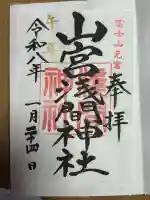 富士山元宮
奉拝
山宮浅間神社
令和八年
一月二十四日